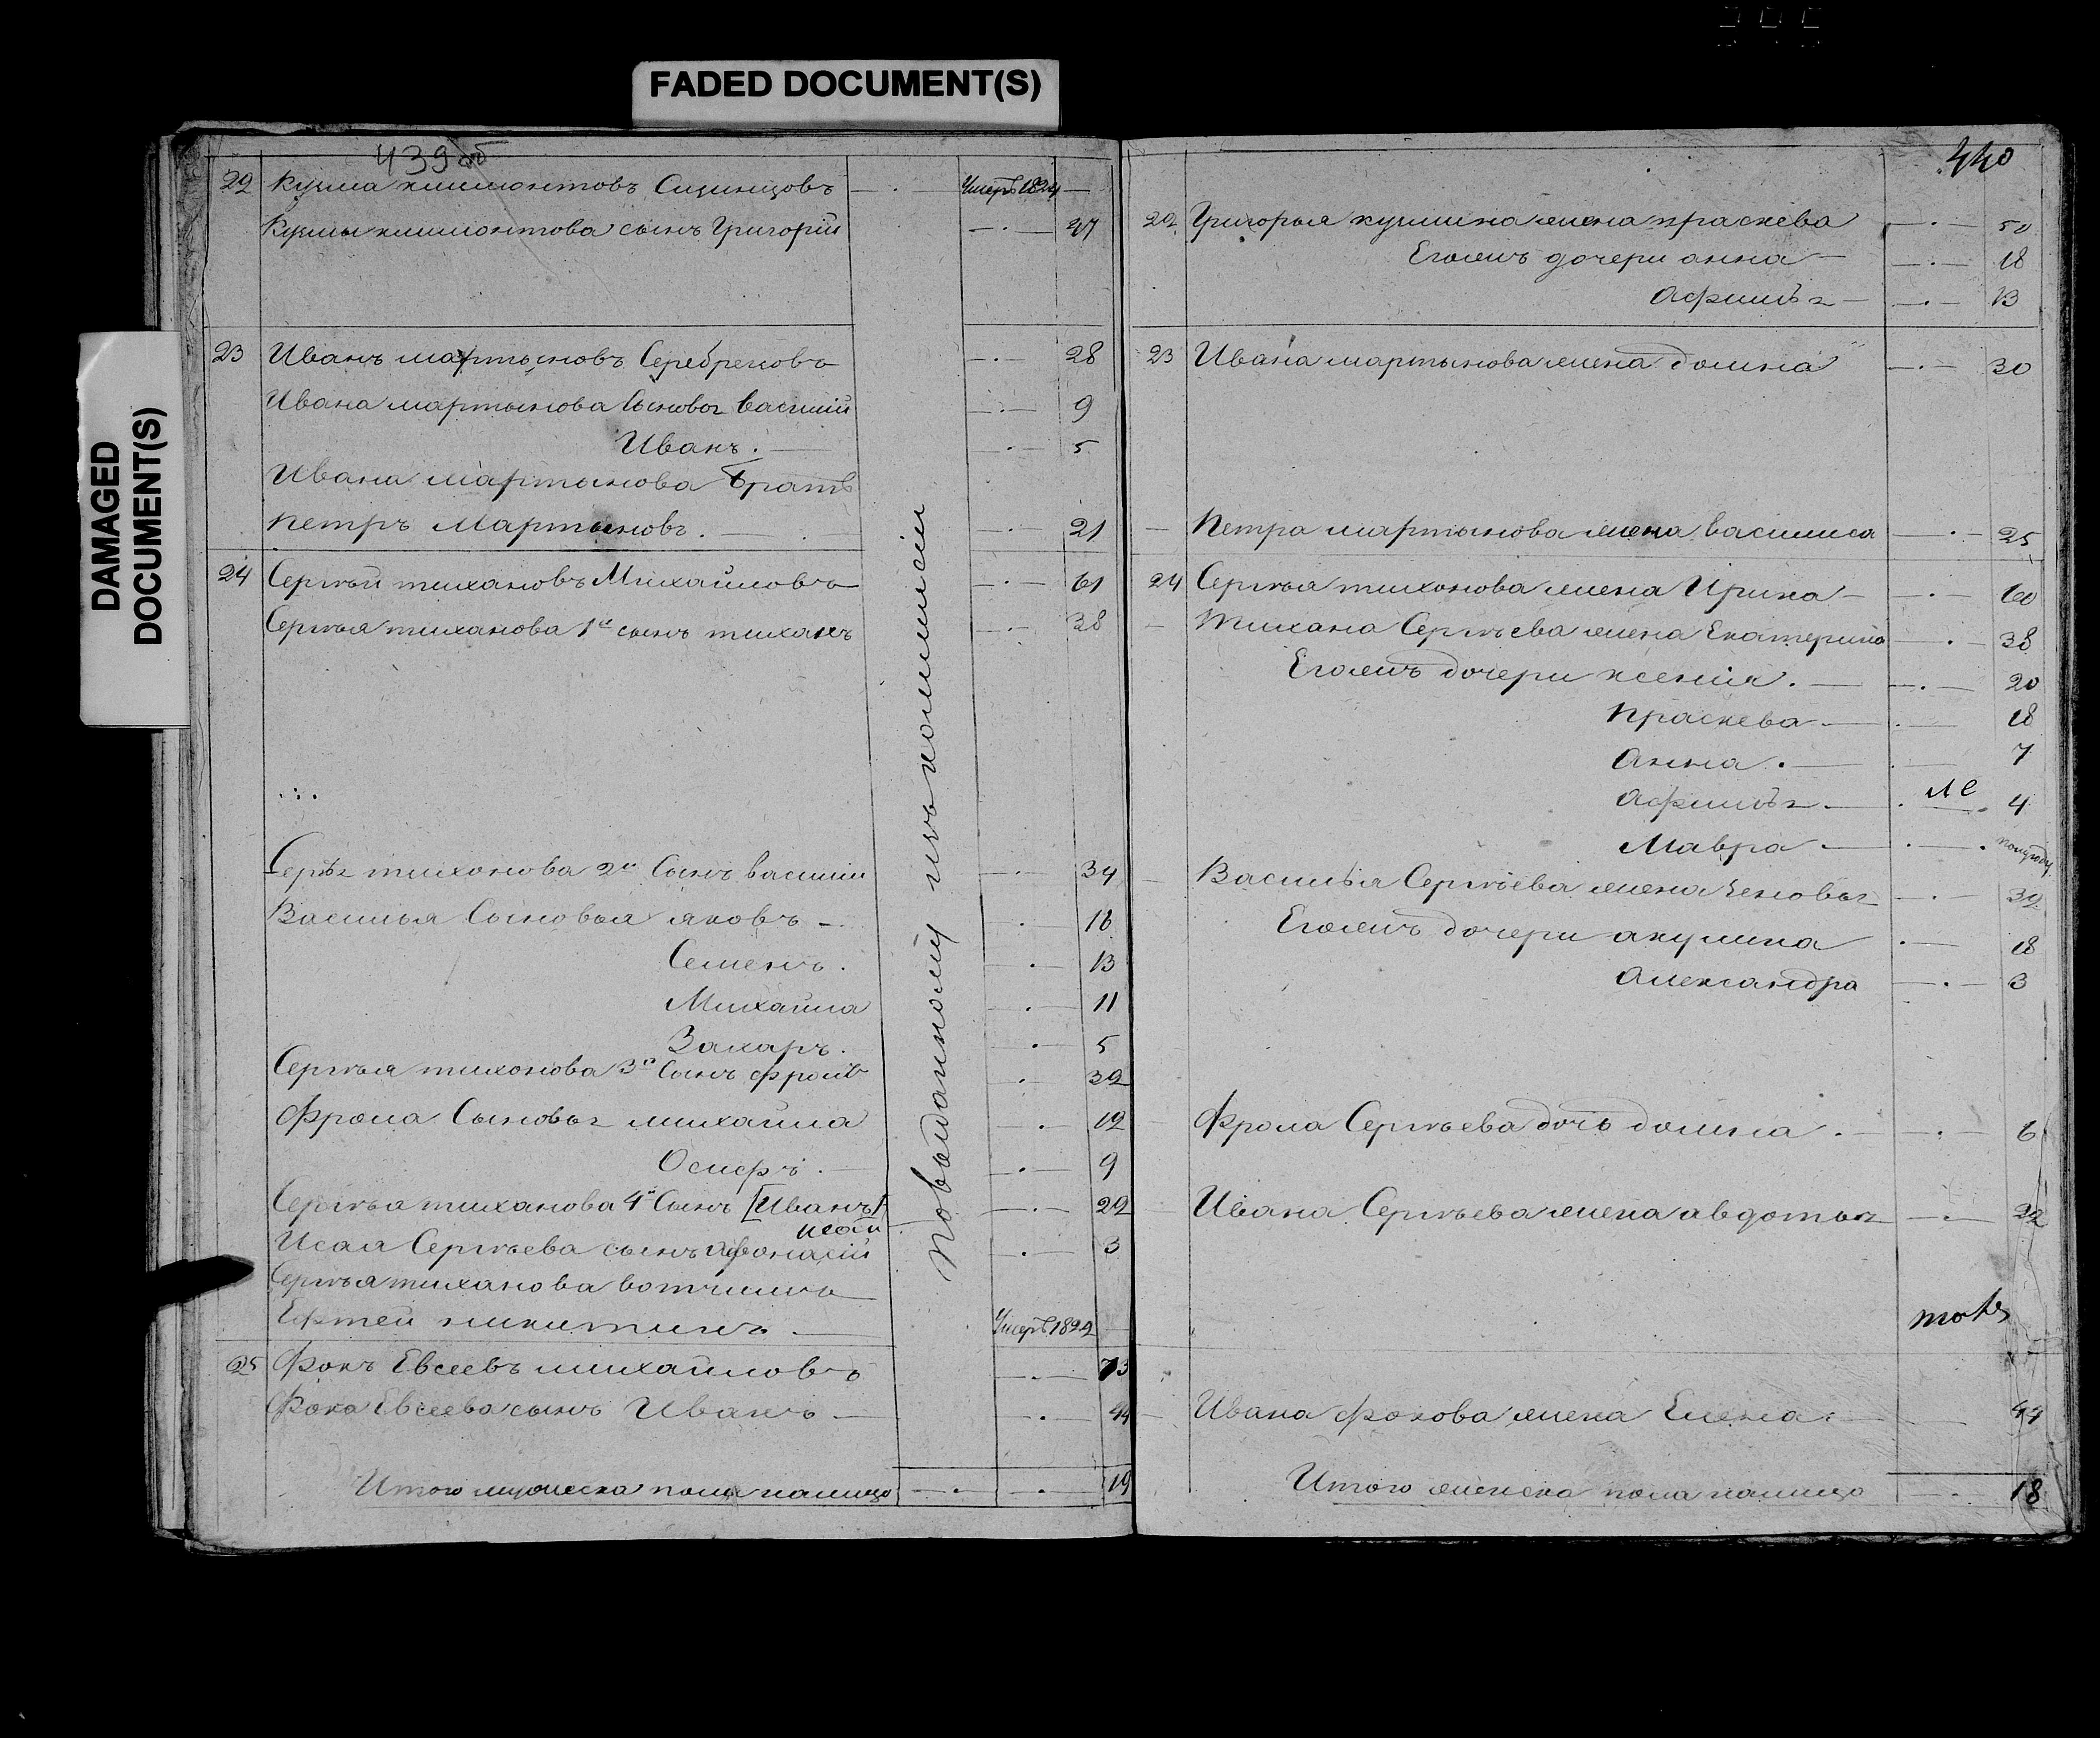 FADED DOCUMENT(S)
DAMAGED
DOCUMENT(S)
439 об
22 Кузма климонтовъ Синицовъ — Умеръ 1824
Кузмы климонтова сынъ Григорій 47
23 Иванъ мартыновъ Серебреновъ 28
Ивана мартынова Сыновья василий 9
Иванъ. 5
Ивана мартынова братъ
Петръ Мартыновъ. 21
24 Сергѣй тихановъ Михайловъ 61
Сергѣя тиханова 1й сынъ тиханъ 38
Сергѣя тихонова 2й Сынъ василий 34
Василья Сыновья яковъ 16
Семенъ. 13
Михайла 11
Захаръ. 5
Сергѣя тихонова 3й Сынъ фролъ 32
Фрола Сыновья михайла 12
Осифъ. 9
Сергѣя тиханова 4й Сынъ [Иванъ] 29
исай
Исая Сергѣева сынъ афонасій 3
Сергѣя тиханова вотчимъ
Ефтей никитинъ. Умеръ 1822
25 Фокъ Евсеевъ михайловъ 73
Фока Евсеева сынъ Иванъ 44
Итого мужеска пола налицо 19
440
22 Григорья кузмина жена праскева 50
Егожъ дочери анна 18
Афимья 13
23 Ивана мартынова жена домна 30
Петра мартынова жена василиса 25
24 Сергѣя тихонова жена Ирина 60
Тихана Сергѣева жена Екатерина 38
Егожъ дочери ксения. 20
Праскева 18
Анна. 7
Афимья 4
Мавра полугоду
Василья Сергѣева жена 32
Егожъ дочери акулина 18
Александра 3
Фрола Сергѣева дочь домна. 6
Ивана Сергѣева жена авдотья 22
тожъ
Ивана фокова жена Елена 44
Итого женска пола налицо 18